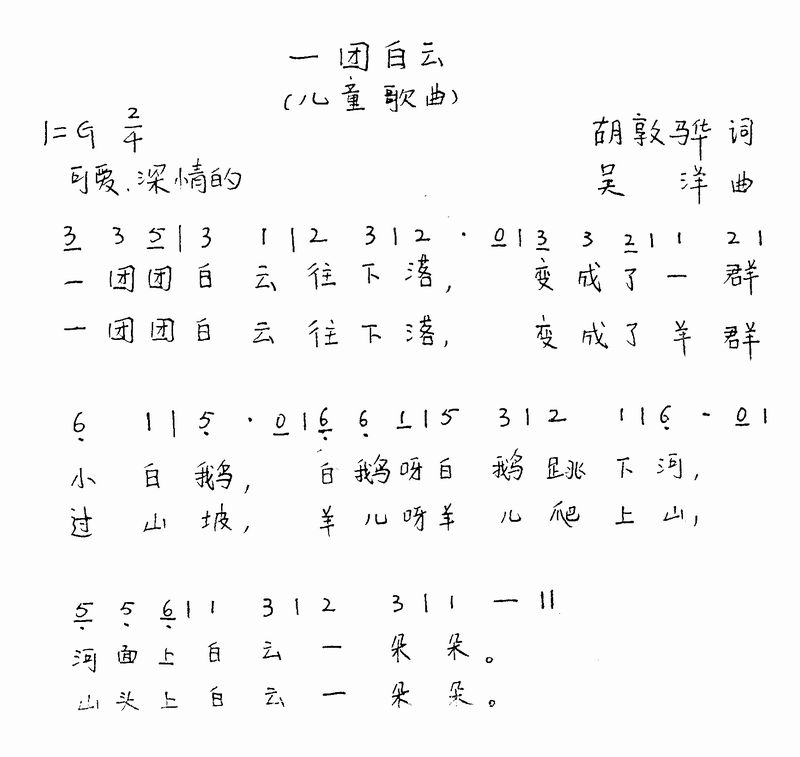 一团白云
(儿童歌曲)
1=G 2/4
胡敦骅 词
可爱.深情的
吴 洋 曲
3 3 5 | 3 1 | 2 3 | 2 · 0 | 3 3 2 | 1 2 |
一团团白云往下落, 变成了一群
一团团白云往下落, 变成了羊群
6 1 | 5 · 0 | 6 6 1 | 5 3 | 2 1 | 6 - 0 |
小白鹅, 白鹅呀白鹅跳下河,
过山坡, 羊儿呀羊儿爬上山,
5 5 6 | 1 3 | 2 3 | 1 — ||
河面上白云一朵朵。
山头上白云一朵朵。